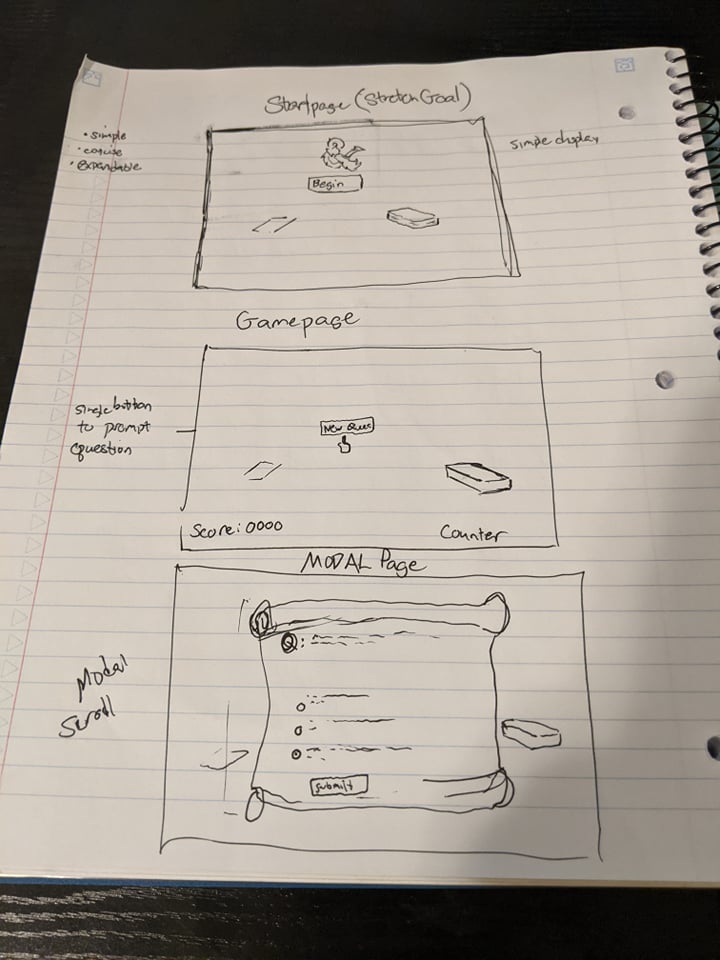 Startpage (Stretch Goal)
• simple
• concise
• Expandable
simple display
Begin
Gamepage
single button
to prompt
question
New Ques
Score: 0000
Counter
MODAL Page
Modal
Scroll
Q:
submit